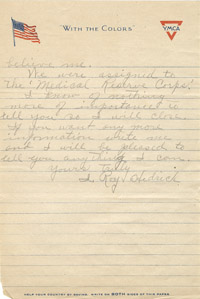 "WITH THE COLORS"
YMCA
believe me.
We were assigned to
the "Medical Reserve Corps."
I know of nothing
more of importances to
tell you so I will close.
If you want any more
information write me
and I will be pleased to
tell you anything I can.
Yours truly
I. Roy Oldrick
HELP YOUR COUNTRY BY SAVING. WRITE ON BOTH SIDES OF THIS PAPER